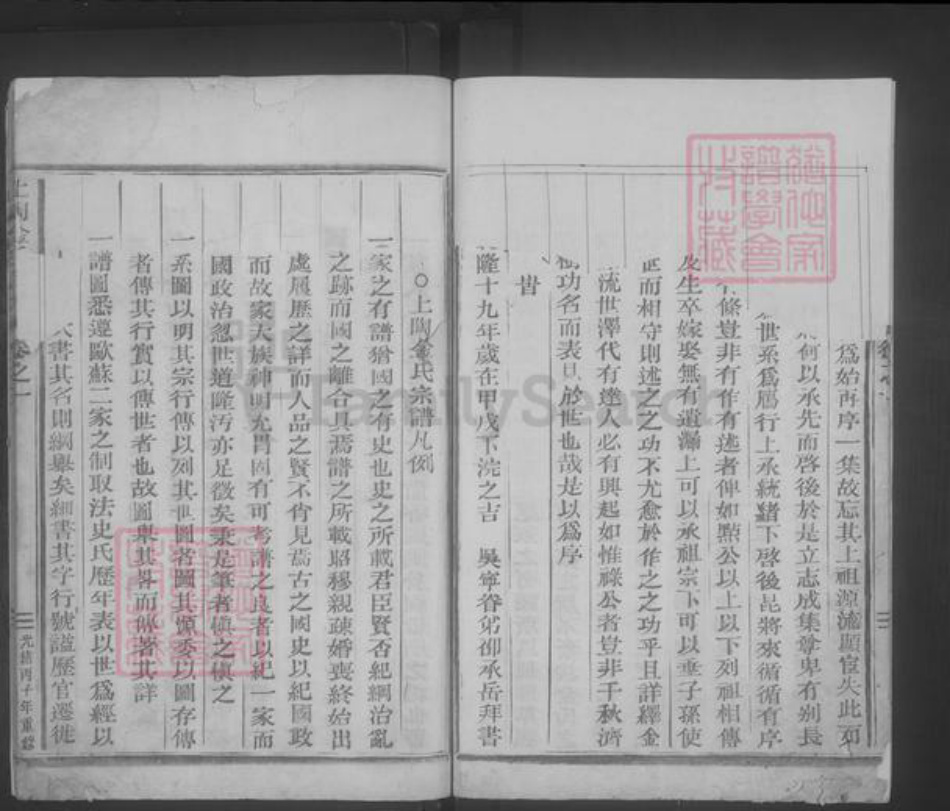 爲始再序一集故忘其上祖源流顯宦失此而
何以承先而啓後於是立志成集尊卑有别長
世系爲屬行上承統緒下啓後昆將來循循有序
條豈非有作有述者俾如點公以上以下列祖相傳
及生卒嫁娶無有遺漏上可以承祖宗下可以垂子孫使
世而相守則述之之功不尤愈於作之之功乎且詳繹金
流世澤代有達人必有興起如惟祿公者豈非千秋濟
功名而表於世也哉是以爲序
旹
隆十九年歲在甲戌下浣之吉　吳寧眷弟仰承岳拜書
○上陶金氏宗譜凡例
一家之有譜猶國之有史也史之所載君臣賢否紀綱治亂
之跡而國之離合具焉譜之所載昭穆親疎婚喪終始出
處履歷之詳而人品之賢不肖見焉古之國史以紀國政
而故家大族神明允冑固有可考譜之良者以紀一家而
國政治忽世道隆汚亦足徵矣秉是筆者愼之愼之
一系圖以明其宗行傳以列其世圖者圖其源委以圖存傳
者傳其行實以傳世者也故圖舉其畧而傳著其詳
一譜圖悉遵歐蘇二家之制取法史氏歷年表以世爲經以
大書其名則綱舉矣細書其字行號謚歷官遷徙
卷之一
光緒丙子年重鐫